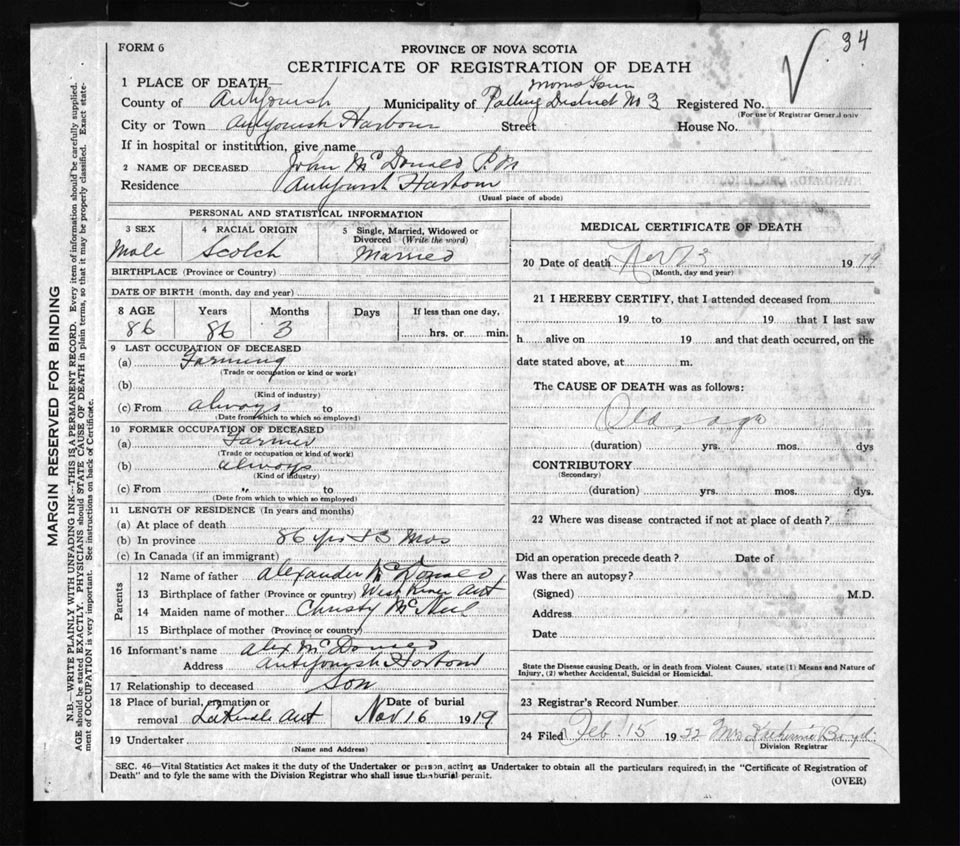 34
FORM 6
PROVINCE OF NOVA SCOTIA
CERTIFICATE OF REGISTRATION OF DEATH
1 PLACE OF DEATH—
County of Antigonish Municipality of Polling District No 3 Registered No.
(For use of Registrar General only
City or Town Antigonish Harbour Street House No.
If in hospital or institution, give name
2 NAME OF DECEASED John McDonald
Residence Antigonish Harbour
(Usual place of abode)
PERSONAL AND STATISTICAL INFORMATION
3 SEX 4 RACIAL ORIGIN 5 Single, Married, Widowed or Divorced (Write the word)
Male Scotch Married
BIRTHPLACE (Province or Country)
DATE OF BIRTH (month, day and year)
8 AGE Years Months Days If less than one day,
86 86 3 hrs. or min.
9 LAST OCCUPATION OF DECEASED
(a) Farming
(Trade or occupation or kind or work)
(b)
(Kind of industry)
(c) From always to
(Date from which to which so employed)
10 FORMER OCCUPATION OF DECEASED
(a) Farmer
(Trade or occupation or kind of work)
(b) always
(Kind of industry)
(c) From " to
(Date from which to which so employed)
11 LENGTH OF RESIDENCE (In years and months)
(a) At place of death
(b) In province 86 yrs & 3 Mos
(c) In Canada (if an immigrant)
Parents
12 Name of father Alexander McDonald
13 Birthplace of father (Province or country) West River Ant
14 Maiden name of mother Christy McNeil
15 Birthplace of mother (Province or country)
16 Informant's name Alex McDonald
Address Antigonish Harbour
17 Relationship to deceased Son
18 Place of burial, cremation or removal Lakevale Ant Date of burial Nov 16 1919
19 Undertaker
(Name and Address)
MEDICAL CERTIFICATE OF DEATH
20 Date of death Nov 13 1919
(Month, day and year)
21 I HEREBY CERTIFY, that I attended deceased from
19 to 19 that I last saw
h alive on 19 and that death occurred, on the
date stated above, at m.
The CAUSE OF DEATH was as follows:
Old age
(duration) yrs. mos. dys
CONTRIBUTORY
(Secondary)
(duration) yrs. mos. dys.
22 Where was disease contracted if not at place of death?
Did an operation precede death? Date of
Was there an autopsy?
(Signed) M.D.
Address
Date
State the Disease causing Death, or in death from Violent Causes, state (1) Means and Nature of
Injury, (2) whether Accidental, Suicidal or Homicidal.
23 Registrar's Record Number
24 Filed Feb 15 1922 Mrs Boyd
Division Registrar
SEC. 46—Vital Statistics Act makes it the duty of the Undertaker or person acting as Undertaker to obtain all the particulars required in the "Certificate of Registration of
Death" and to fyle the same with the Division Registrar who shall issue the burial permit.
(OVER)
MARGIN RESERVED FOR BINDING
N.B.—WRITE PLAINLY WITH UNFADING INK—THIS IS A PERMANENT RECORD. Every item of information should be carefully supplied.
AGE should be stated EXACTLY. PHYSICIANS should STATE CAUSE OF DEATH in plain terms, so that it may be properly classified. Exact state-
ment of OCCUPATION is very important. See instructions on back of Certificate.